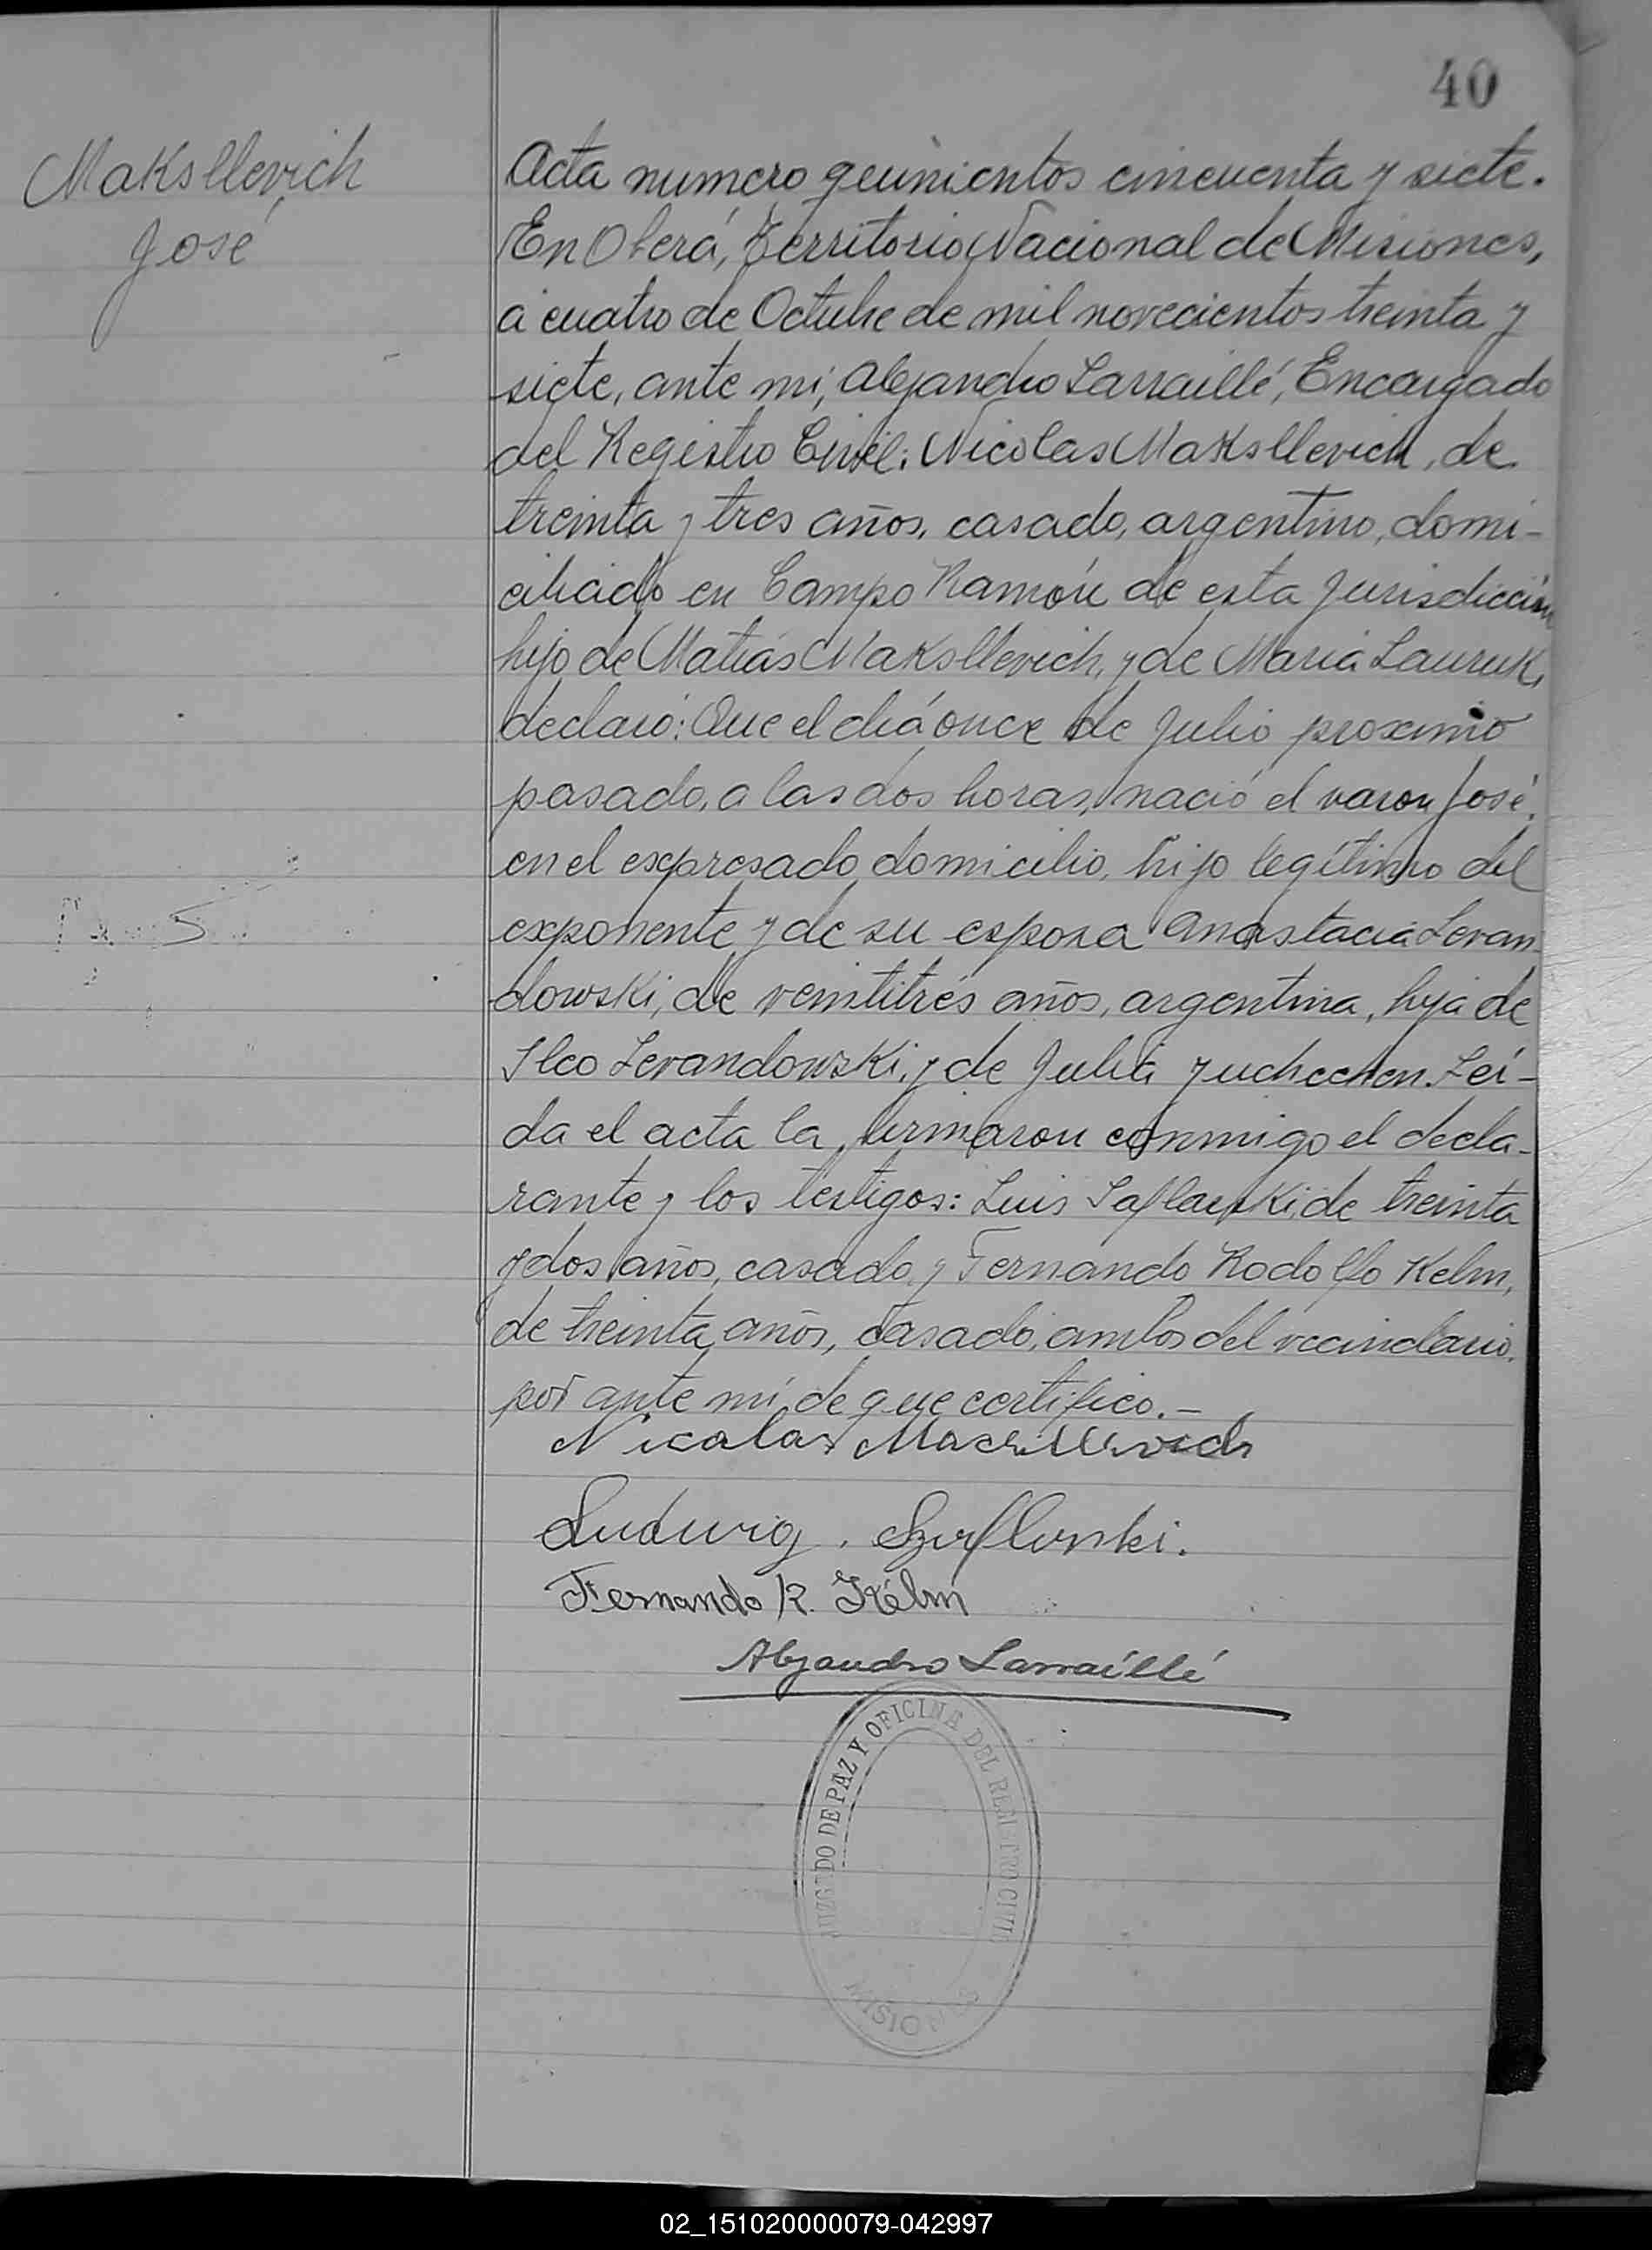 40
Maksllevich
José
Acta numero quinientos cincuenta y siete.
En Oberá, Territorio Nacional de Misiones,
a cuatro de Octubre de mil novecientos treinta y
siete, ante mi, Alejandro Larraillé, Encargado
del Registro Civil: Nicolas Maksllevich, de
treinta y tres años, casado, argentino, domi-
ciliado en Campo Ramón de esta Jurisdicción
hijo de Matias Maksllevich, y de Maria Lauruk,
declaró: Que el dia once de Julio proximo
pasado, a las dos horas, nació el varon José,
en el expresado domicilio, hijo legítimo del
exponente y de su esposa Anastacia Levan-
dowski, de veintitrés años, argentina, hija de
Ilco Levandowski, y de Julia Juchechen. Leí-
da el acta la firmaron conmigo el decla-
rante y los testigos: Luis Saflauski, de treinta
y dos años, casado, y Fernando Rodolfo Kelm,
de treinta años, casado, ambos del vecindario,
por ante mí de que certifico.-
Nicalas Macsillevich
Ludwig . Szaflonski.
Fernando R. Kelm
Alejandro Larraillé
JUZGADO DE PAZ Y OFICINA DEL REGISTRO CIVIL
MISIONES
02_151020000079-042997